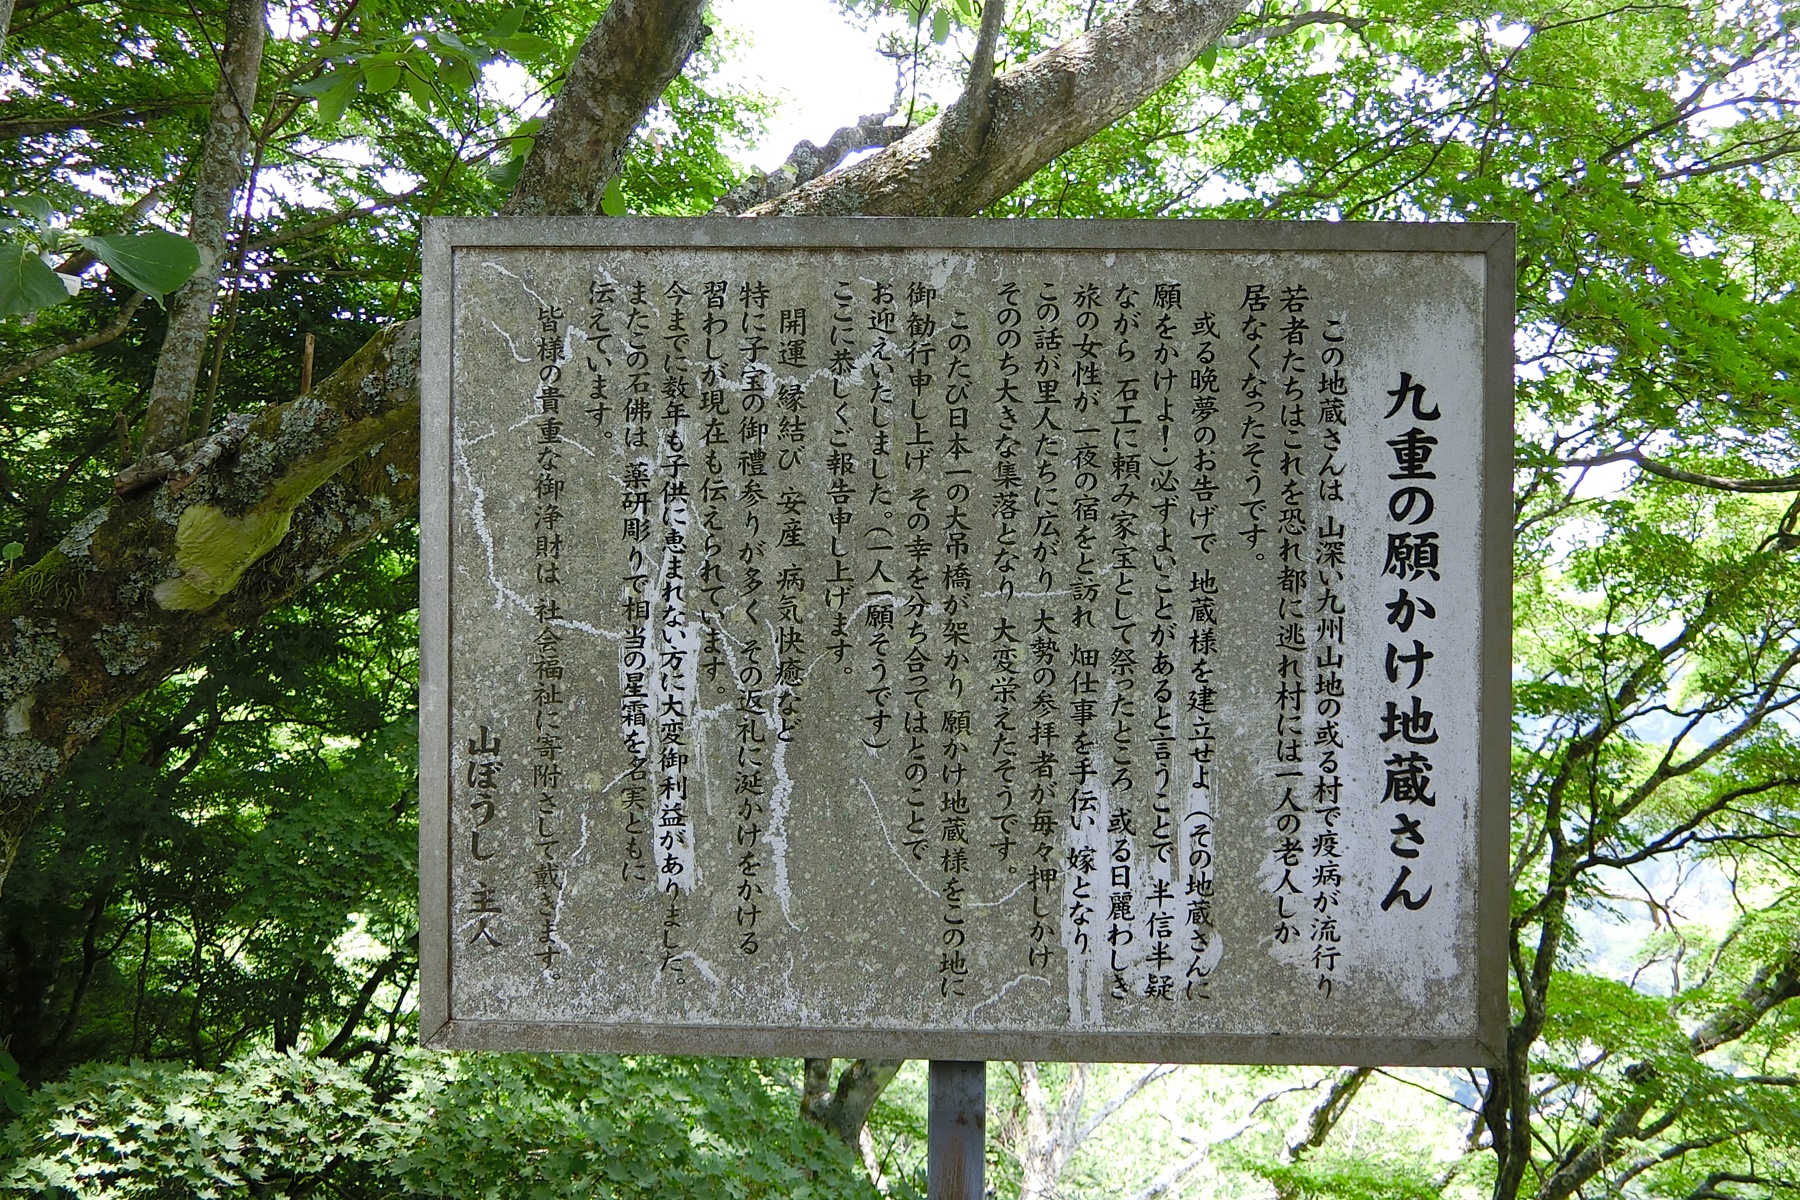 九重の願かけ地蔵さん
この地蔵さんは 山深い九州山地の或る村で疫病が流行り
若者たちはこれを恐れ都に逃れ村には一人の老人しか
居なくなったそうです。
或る晩夢のお告げで 地蔵様を建立せよ (その地蔵さんに
願をかけよ!)必ずよいことがあると言うことで 半信半疑
ながら 石工に頼み家宝として祭ったところ 或る日麗わしき
旅の女性が一夜の宿をと訪れ 畑仕事を手伝い 嫁となり
この話が里人たちに広がり 大勢の参拝者が毎々押しかけ
そののち大きな集落となり 大変栄えたそうです。
このたび日本一の大吊橋が架かり 願かけ地蔵様をこの地に
御勧行申し上げ その幸を分ち合ってはとのことで
お迎えいたしました。(一人一願そうです)
ここに恭しくご報告申し上げます。
開運 縁結び 安産 病気快癒など
特に子宝の御禮参りが多く その返礼に涎かけをかける
習わしが現在も伝えられています。
今までに数年も子供に恵まれない方に大変御利益がありました。
またこの石佛は 薬研彫りで相当の星霜を名実ともに
伝えています。
皆様の貴重な御浄財は 社会福祉に寄附さして戴きます。
山ぼうし 主人